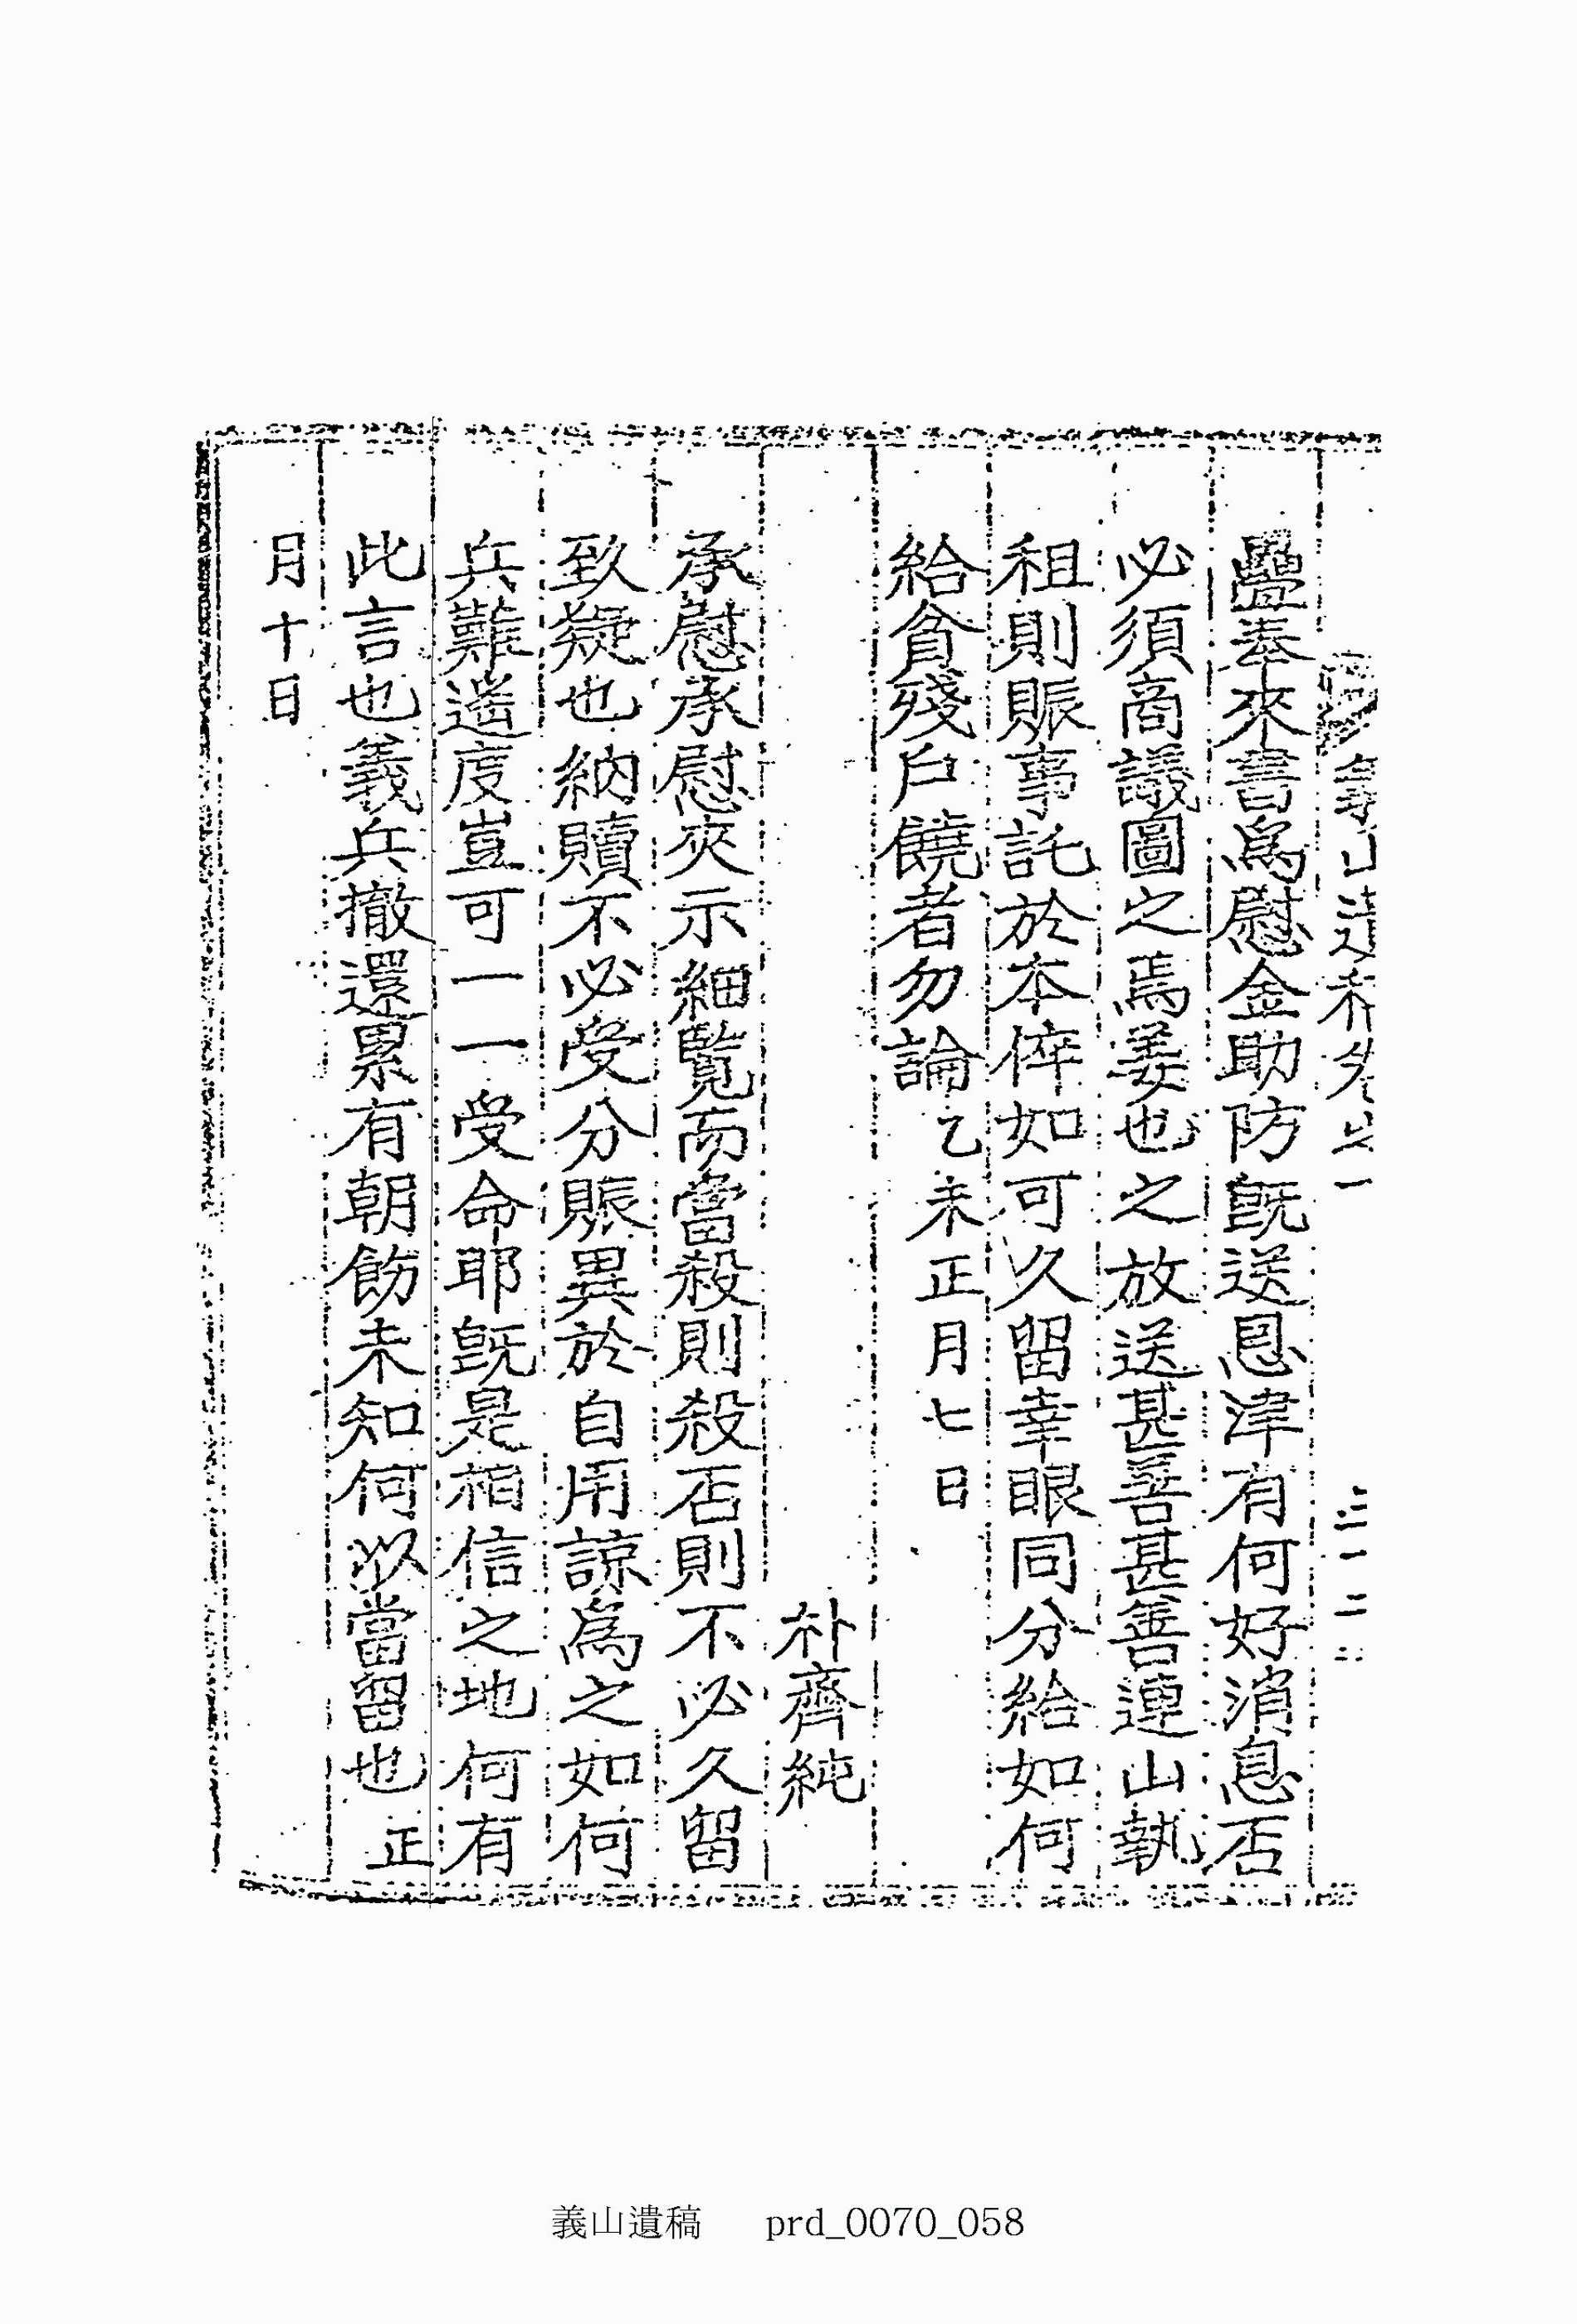 疊奉來書爲慰金助防旣送恩津有何好消息否
必須商議圖之焉姜也之放送甚善甚善連山執
租則賑事託於本倅如可久留幸眼同分給如何
給貧殘戶饒者勿論乙未正月七日
朴齊純
承慰承慰夾示細覽而當殺則殺否則不必久留
致疑也納贖不必受分賑異於自用諒爲之如何
兵難遙度豈可一一受命耶旣是相信之地何有
此言也義兵撤還累有朝飭未知何以當留也正
月十日
義山遺稿 prd_0070_058